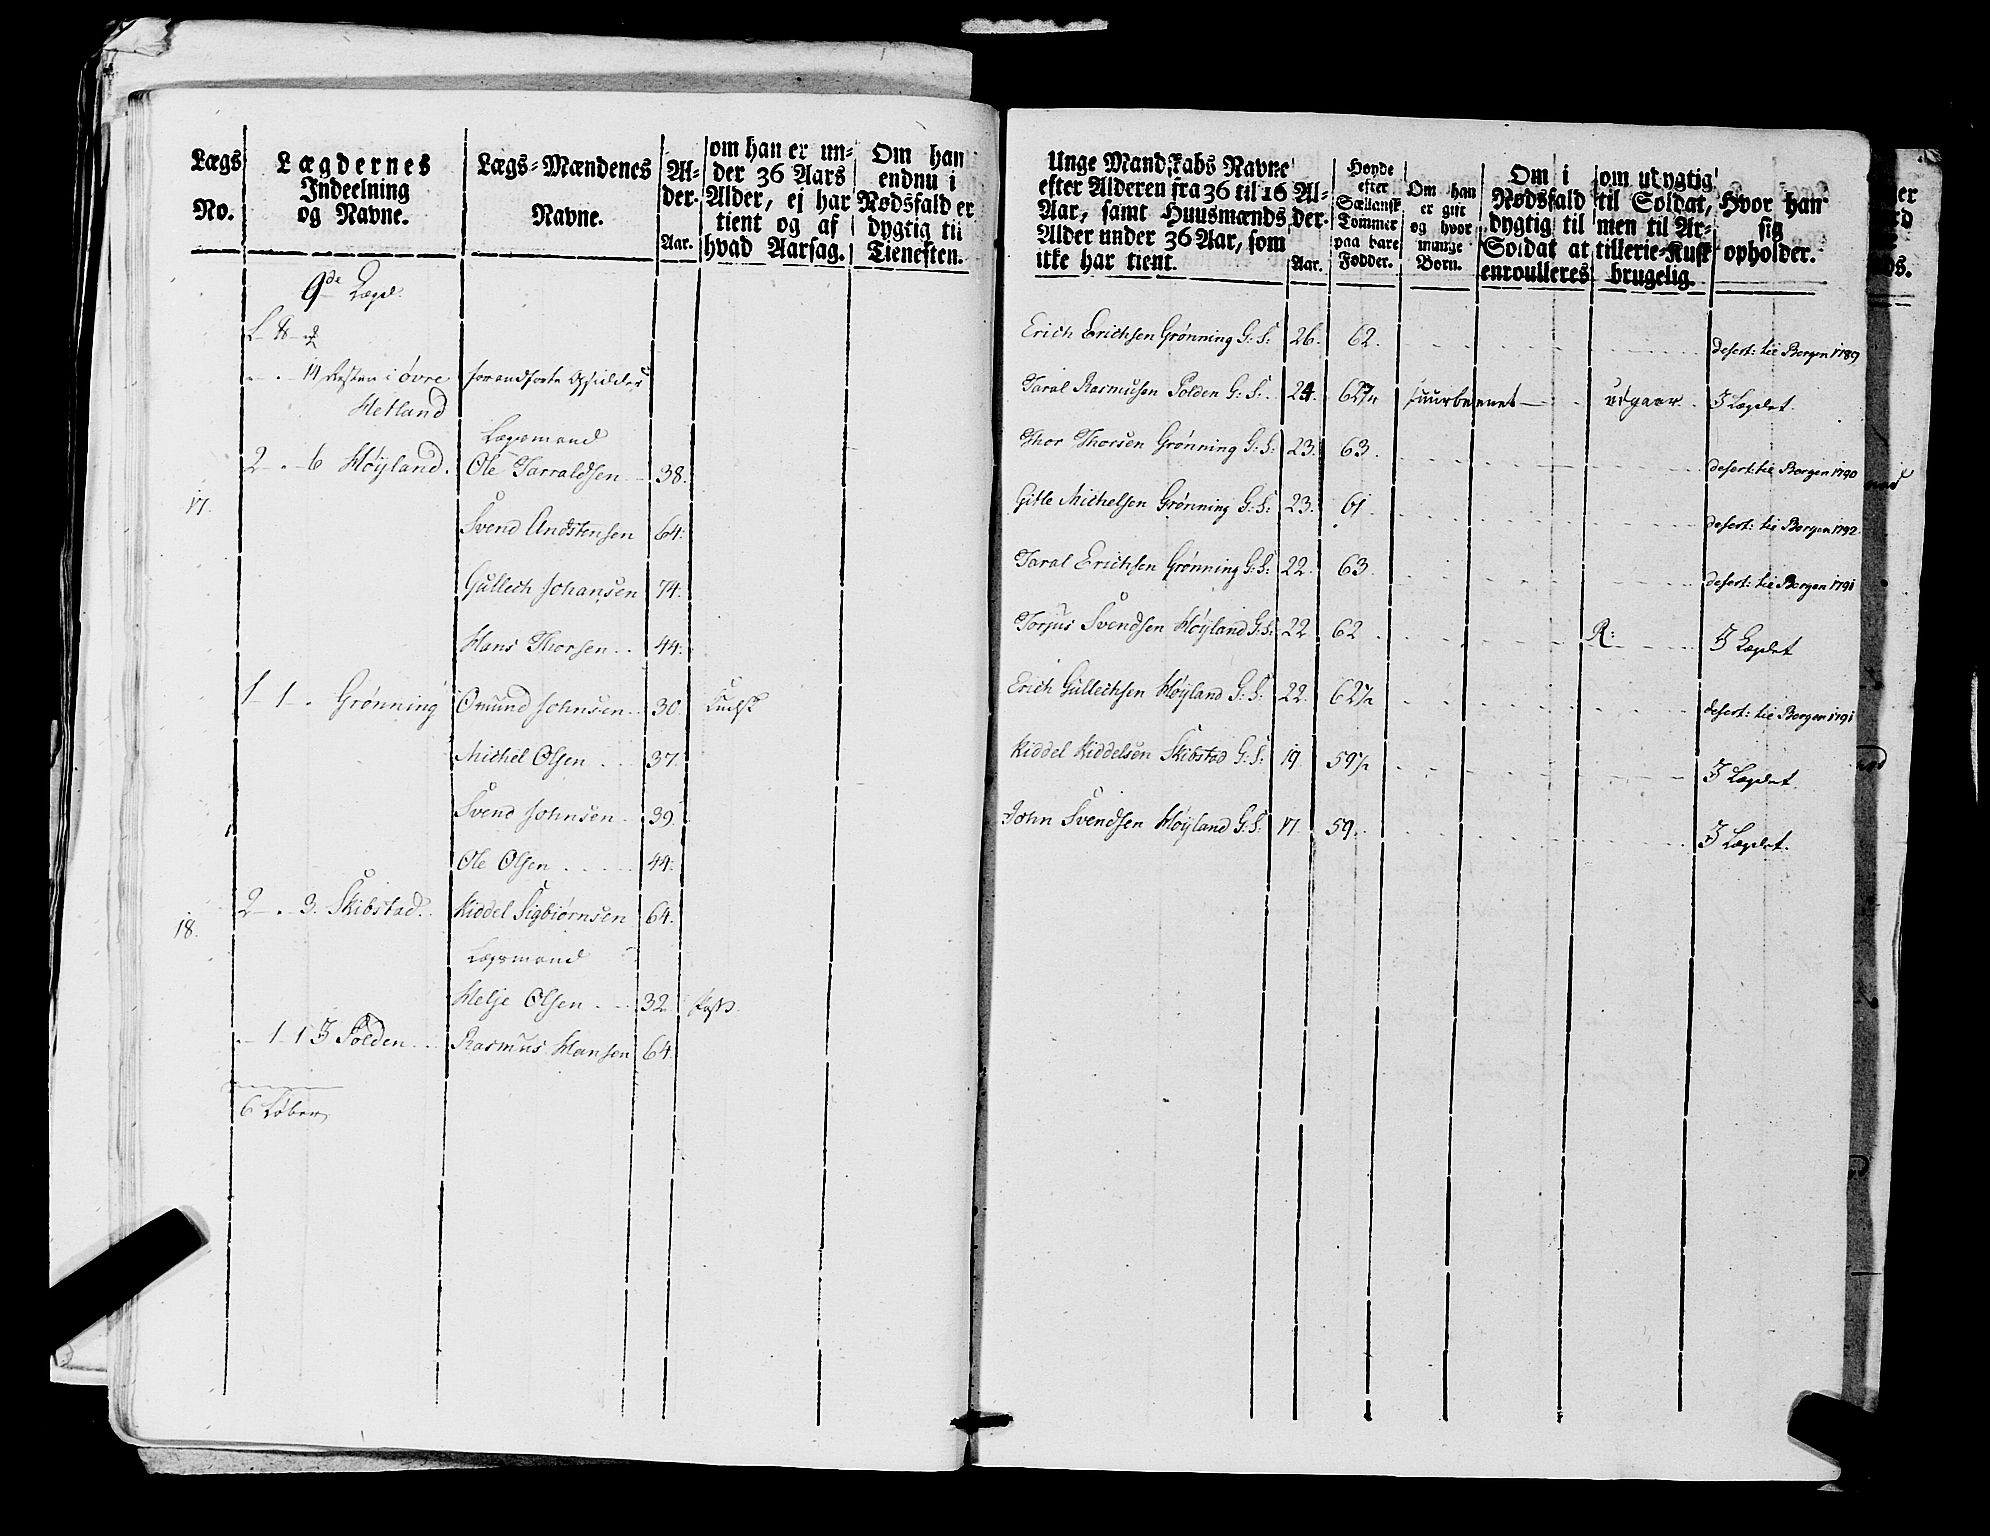 Lægs No.
Lægdernes Indeelning og Navne.
Lægs-Mændenes Navne.
Alder. Aar.
om han er under 36 Aars Alder, ej har tient og af hvad Aarsag.
Om han endnu i Nødsfald er dygtig til Tienesten.
9de Lægd.
14 Resten i øvre
Hetland
Lægsmand
2 - . - 6 Høyland. Ole Tarraldsen 38.
17.
Svend Andstensen 64.
Gullech Johansen 74.
Hans Thorsen . . 44.
1 - 1 - . Grønning Omund Johnsen 30. Kudsk
Michel Olsen . . . 37.
Svend Johnsen . 39.
Ole Olsen . . . . . 44.
2 - . - 3. Skibstad. Kiddel Sigbiørnsen 64.
18.
Lægsmand
Helje Olsen . . . 32
. - 1 - 1 3 Solden . . Rasmus Hansen 64.
6 Løber
Unge Mandskabs Navne efter Alderen fra 36 til 16 Aar, samt Huusmænds Alder under 36 Aar, som ikke har tient.
Alder. Aar.
Høyde efter Siællansk Tommer paa bare Fødder.
Om han er gift og hvor mange Børn.
Om i Nødsfald dygtig til Soldat at enroulleres
om udygtig til Soldat, men til Artillerie-Kusk brugelig.
Hvor han sig opholder.
Erich Erichsen Grønning G: S: 26. 62. desert: til Bergen 1789
Taral Rasmusen Solden G: S: . 24. 62½ skurbenet udgaar . I Lægdet.
Thor Thorsen Grønning G: S: 23. 63. desert: til Bergen 1790
Gitle Michelsen Grønning G: S: 23. 61 desert: til Bergen 1792
Taral Erichsen Grønning G: S: 22. 63. desert: til Bergen 1791
Torjus Svendsen Høyland G: S: 22 62 R: I Lægdet
Erich Gullechsen Høyland G: S: 22. 62½ desert: til Bergen 1791
Kiddel Kiddelsen Skibstad G: S: 19. 59½ I Lægdet.
John Svendsen Høyland G: S: 17. 59. I Lægdet.